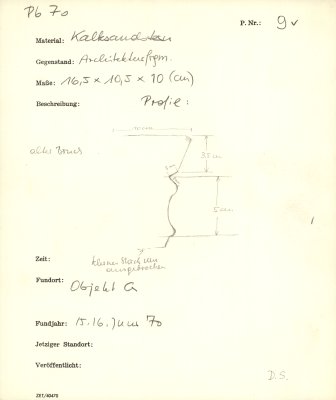 Pb 70
P. Nr.: 9 ✓
Material: Kalksandstein
Gegenstand: Architekturfragm.
Maße: 16,5 x 10,5 x 10 (cm)
Beschreibung: Profil:
10 cm
alter Bruch
3,5 cm
5 cm
Zeit:
kleines Stück
ausgebrochen
Fundort:
Objekt G
Fundjahr: 15. 16. Juni 70
Jetziger Standort:
Veröffentlicht:
D.S.